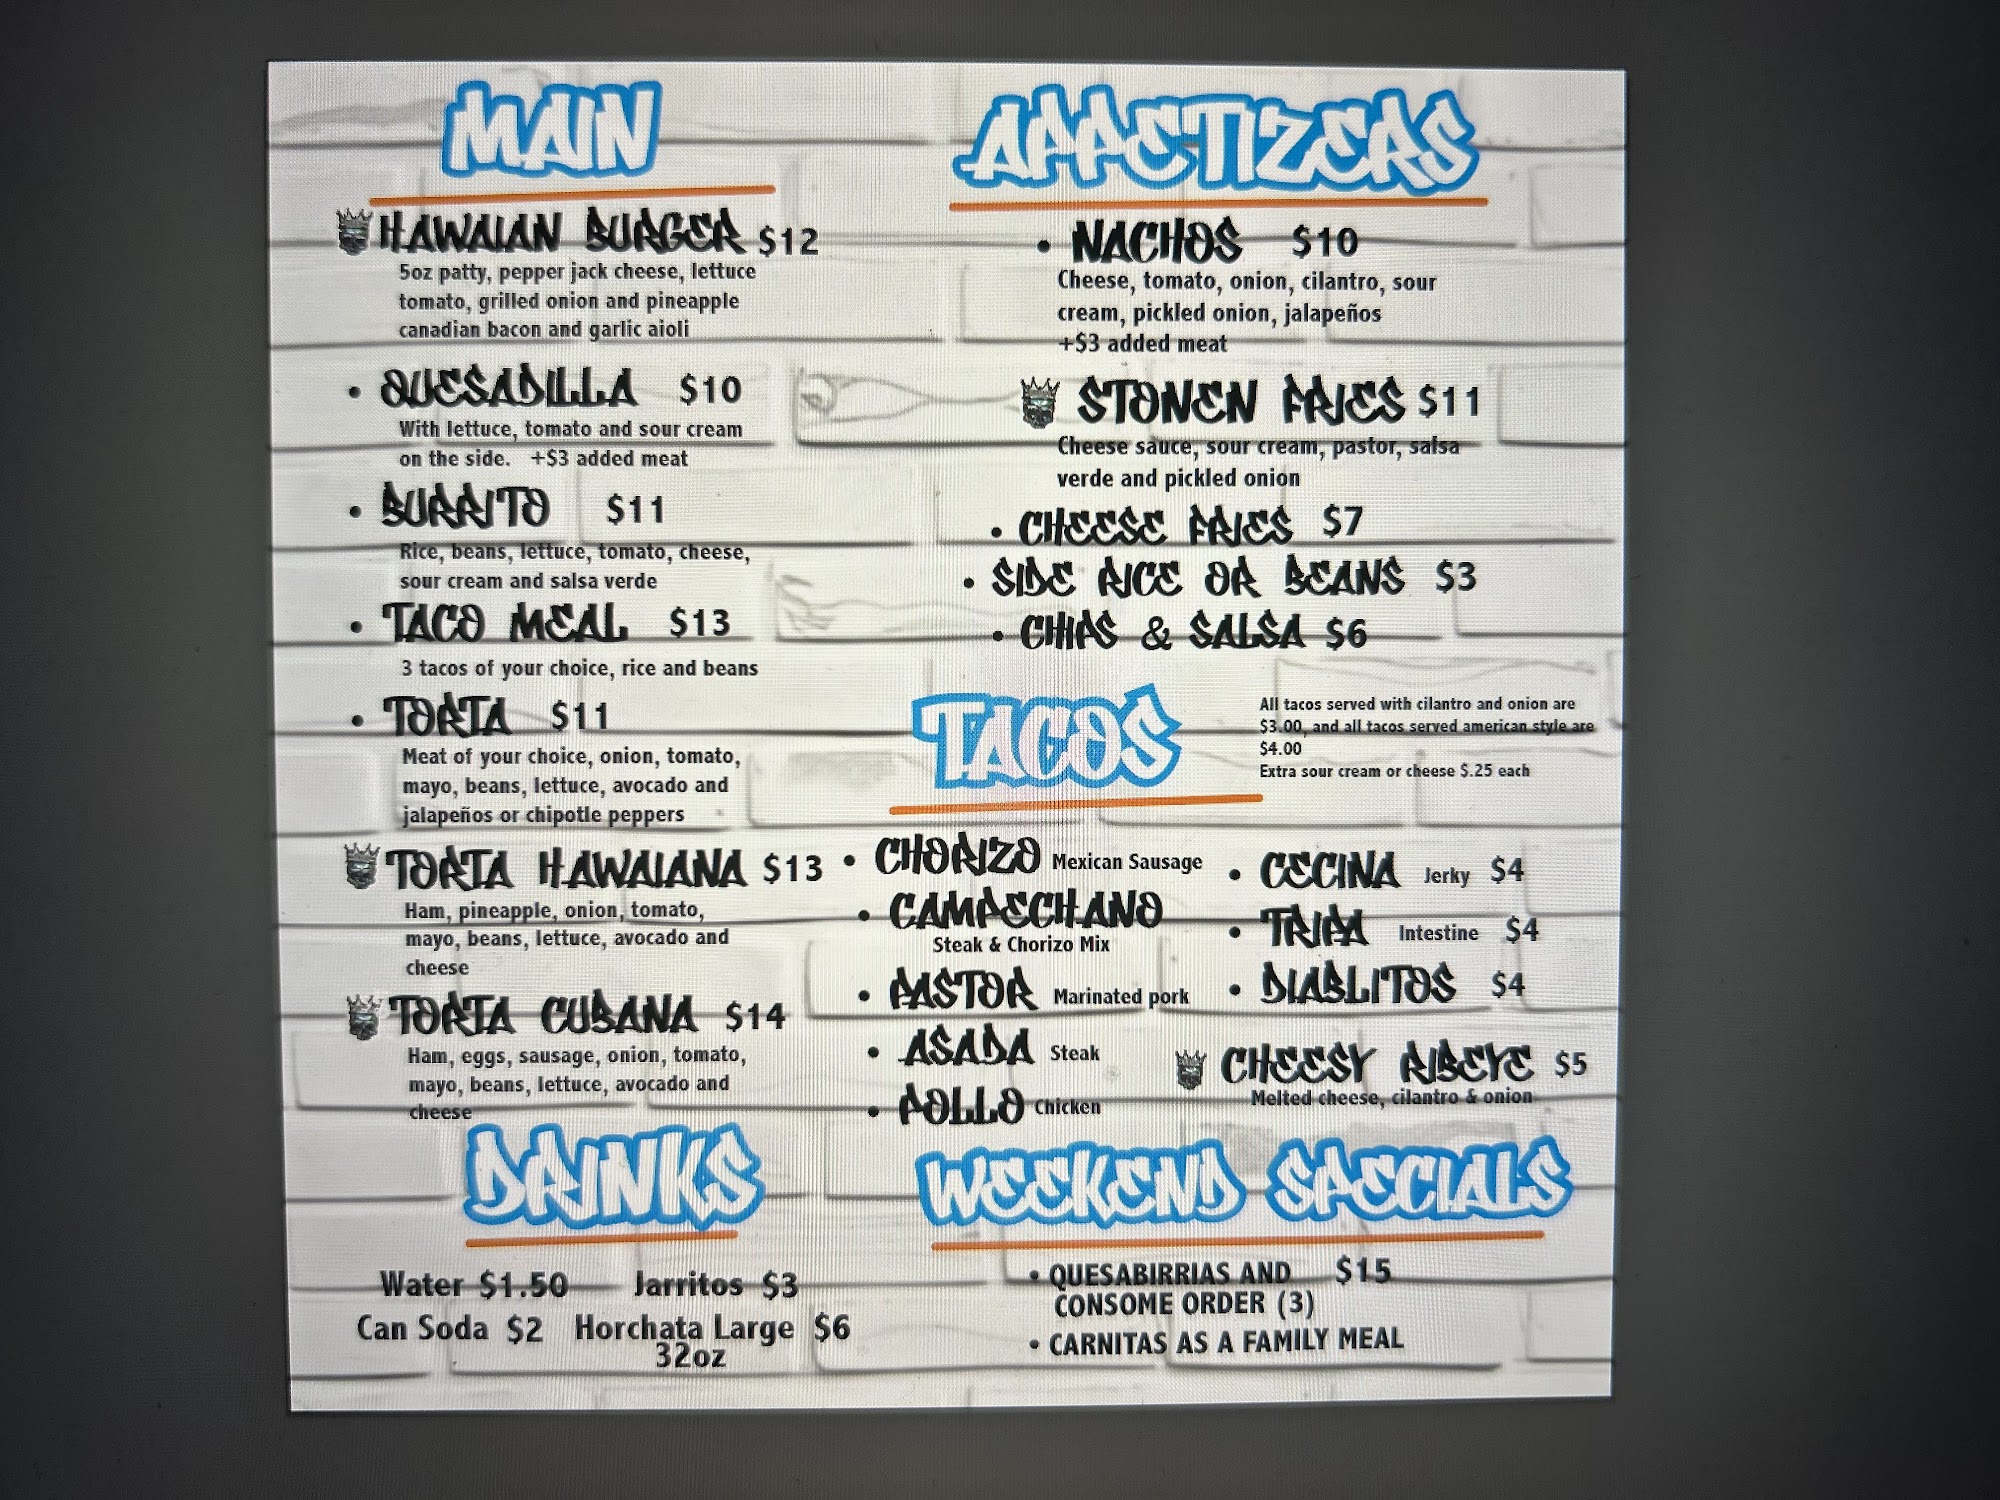 MAIN
HAWAIAN BURGER $12
5oz patty, pepper jack cheese, lettuce
tomato, grilled onion and pineapple
canadian bacon and garlic aioli
• QUESADILLA $10
With lettuce, tomato and sour cream
on the side. +$3 added meat
• BURRITO $11
Rice, beans, lettuce, tomato, cheese,
sour cream and salsa verde
• TACO MEAL $13
3 tacos of your choice, rice and beans
• TORTA $11
Meat of your choice, onion, tomato,
mayo, beans, lettuce, avocado and
jalapeños or chipotle peppers
TORTA HAWAIANA $13
Ham, pineapple, onion, tomato,
mayo, beans, lettuce, avocado and
cheese
TORTA CUBANA $14
Ham, eggs, sausage, onion, tomato,
mayo, beans, lettuce, avocado and
cheese
DRINKS
Water $1.50 Jarritos $3
Can Soda $2 Horchata Large $6
32oz
APPETIZERS
• NACHOS $10
Cheese, tomato, onion, cilantro, sour
cream, pickled onion, jalapeños
+$3 added meat
STONEN FRIES $11
Cheese sauce, sour cream, pastor, salsa
verde and pickled onion
• CHEESE FRIES $7
• SIDE RICE OR BEANS $3
• CHIPS & SALSA $6
TACOS
All tacos served with cilantro and onion are
$3.00, and all tacos served american style are
$4.00
Extra sour cream or cheese $.25 each
• CHORIZO Mexican Sausage
• CAMPECHANO
Steak & Chorizo Mix
• PASTOR Marinated pork
• ASADA Steak
• POLLO Chicken
• CECINA Jerky $4
• TRIPA Intestine $4
• DIABLITOS $4
CHEESY RIBEYE $5
Melted cheese, cilantro & onion
WEEKEND SPECIALS
• QUESABIRRIAS AND $15
CONSOME ORDER (3)
• CARNITAS AS A FAMILY MEAL